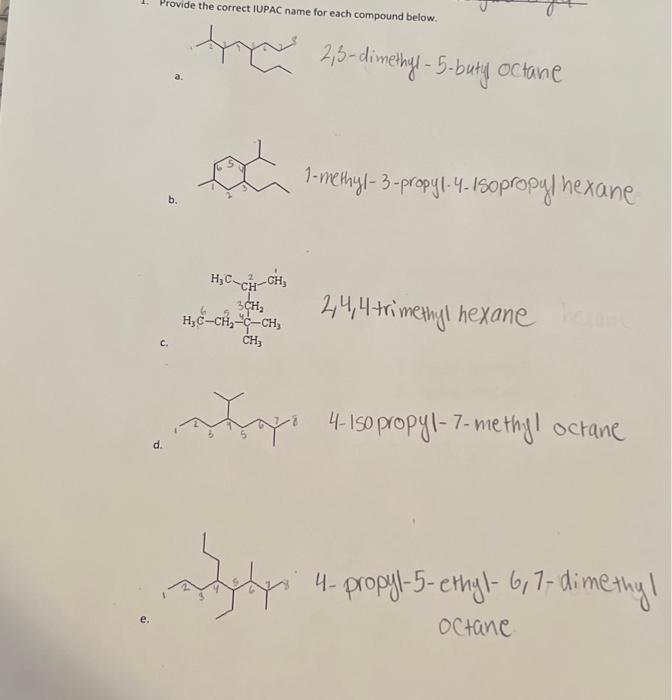 1. Provide the correct IUPAC name for each compound below.
a.
1 2 8
2,3-dimethyl-5-butyl octane
b.
6 5 4 1 2 3
1-methyl-3-propyl-4-isopropyl hexane
c.
1
H₃C-CH-CH₃
2
3CH₂
6 5 4
H₃C-CH₂-C-CH₃
CH₃
2,4,4-trimethyl hexane
d.
1 2 3 4 5 6 7 8
4-isopropyl-7-methyl octane
e.
1 2 3 4 5 6 7 8
4-propyl-5-ethyl-6,7-dimethyl
octane